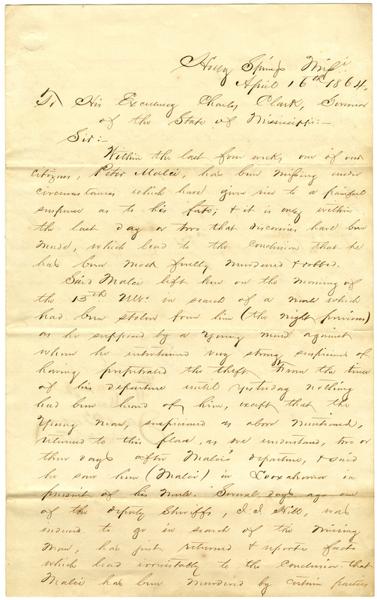 Holly Springs Missi
April 16th 1864.
To His Excellency Charles Clark, Governor
of the State of Mississippi:-
Sir:-
Within the last four weeks, one of our
citizens, Peter Malie, has been missing under
circumstances which have given rise to a painful
suspense as to his fate; & it is only within
the last day or two that discoveries have been
made, which lead to the conclusion that he
has been most foully murdered & robbed.
Said Malie left here on the morning of
the 13th Ulto. in search of a mule which
had been stolen from him (the night previous)
as he supposed by a young man against
whom he entertained very strong suspicions of
having perpetrated the theft. From the time
of his departure until yesterday nothing
had been heard of him, except that the
young man, suspicioned as above mentioned,
returned to this place, as we understand, two or
three days after Malie's departure, & said
he saw him (Malie) in in
pursuit of his mule. Several days ago one
of the Deputy Sheriffs, Hill, was
induced to go in search of the missing
man, has just returned & reports facts
which lead irresistibly to the conclusion that
Malie has been murdered by certain parties